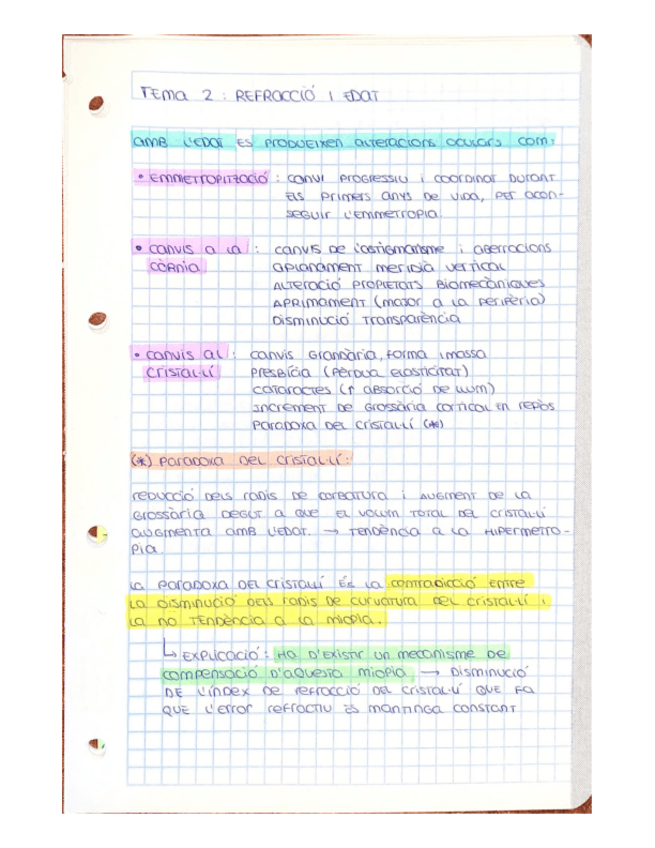 TEMA 2: REFRACCIÓ I EDAT
AMB L'EDAT ES PRODUEIXEN ALTERACIONS OCULARS COM:
• EMMETROPITZACIÓ: CANVI PROGRESSIU I COORDINAT DURANT
ELS PRIMERS ANYS DE VIDA, PER ACON-
SEGUIR L'EMMETROPIA.
• CANVIS A LA: CANVIS DE L'ASTIGMATISME I ABERRACIONS
CÒRNIA APLANAMENT MERIDIÀ VERTICAL
ALTERACIÓ PROPIETATS BIOMECÀNIQUES
APRIMAMENT (MAJOR A LA PERIFÈRIA)
DISMINUCIÓ TRANSPARÈNCIA
• CANVIS AL: CANVIS GRANDÀRIA, FORMA I MASSA
CRISTAL·LÍ PRESBÍCIA (PÈRDUA ELASTICITAT)
CATARACTES (↑ ABSORCIÓ DE LLUM)
INCREMENT DE GROSSÀRIA CORTICAL EN REPÒS
PARADOXA DEL CRISTAL·LÍ (*)
(*) PARADOXA DEL CRISTAL·LÍ:
REDUCCIÓ DELS RADIS DE CORBATURA I AUGMENT DE LA
GROSSÀRIA DEGUT A QUE EL VOLUM TOTAL DEL CRISTAL·LÍ
AUGMENTA AMB L'EDAT. → TENDÈNCIA A LA HIPERMETRO-
PIA
LA PARADOXA DEL CRISTAL·LÍ ÉS LA CONTRADICCIÓ ENTRE
LA DISMINUCIÓ DELS RADIS DE CURVATURA DEL CRISTAL·LÍ I
LA NO TENDÈNCIA A LA MIOPIA.
↳ EXPLICACIÓ: HA D'EXISTIR UN MECANISME DE
COMPENSACIÓ D'AQUESTA MIOPIA → DISMINUCIÓ
DE L'ÍNDEX DE REFRACCIÓ DEL CRISTAL·LÍ QUE FA
QUE L'ERROR REFRACTIU ES MANTINGA CONSTANT